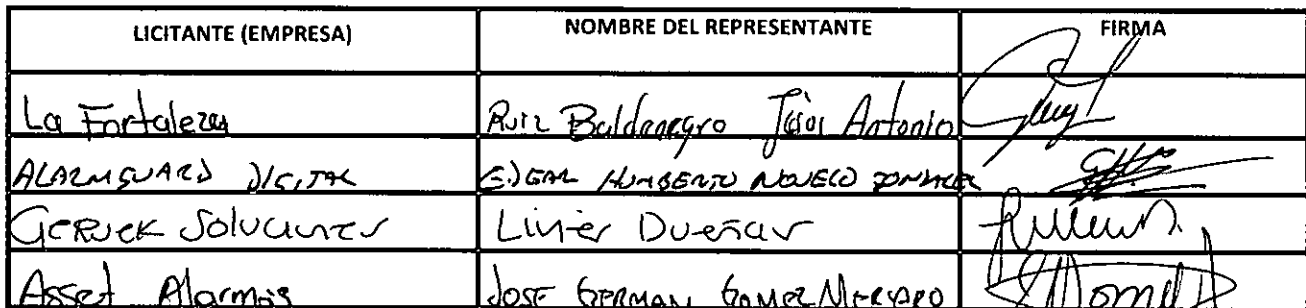 LICITANTE (EMPRESA) NOMBRE DEL REPRESENTANTE FIRMA
La Fortaleza Ruiz Baldenegro Jesús Antonio
ALARMGUARD DIGITAL EDGAR HUMBERTO NOVELO
GERUEK Soluciones Livier Dueñas
Asset Alarmas JOSE GERMAN GOMEZ MERCADO